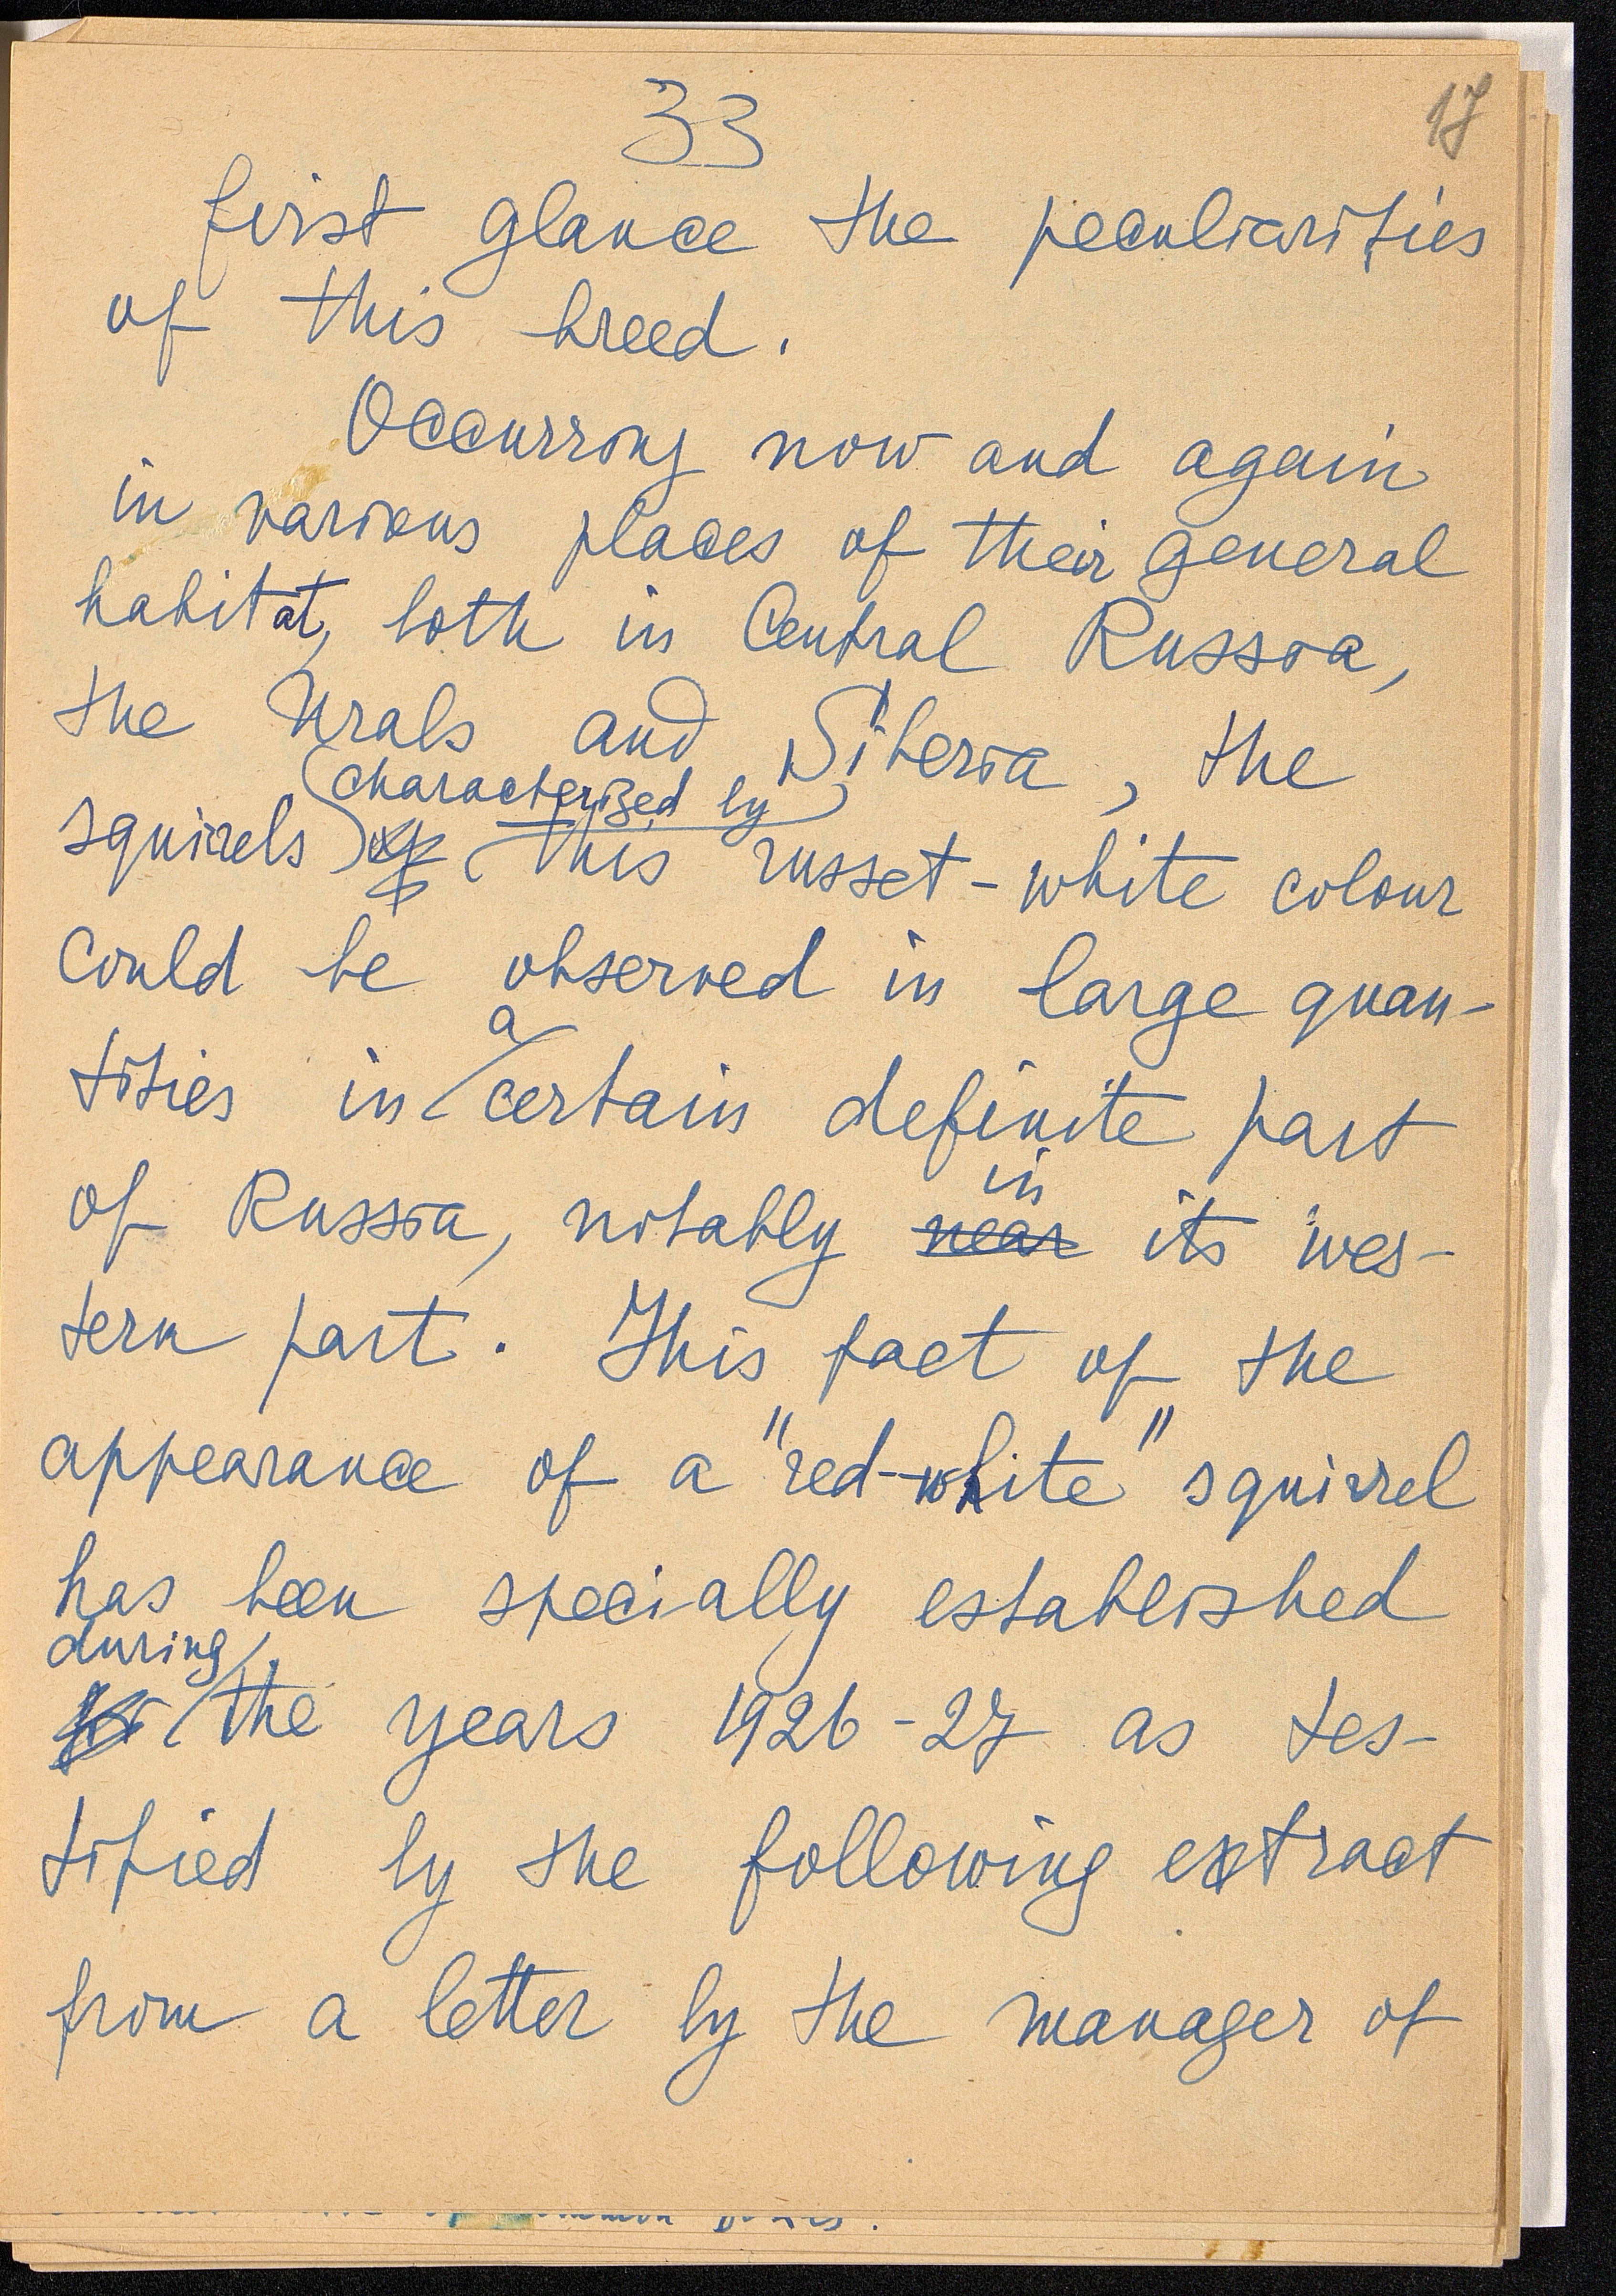 33
17
first glance the peculiarities
of this breed.
Occurring now and again
in various places of their general
habitat, both in Central Russia,
the Urals and Siberia, the
characterized by
squirrels of this russet-white colour
could be observed in large quan-
a
tities in certain definite part
in
of Russia, notably near its wes-
tern part. This fact of the
appearance of a "red-white" squirrel
has been specially established
during
the years 1926-27 as tes-
tified by the following extract
from a letter by the manager of